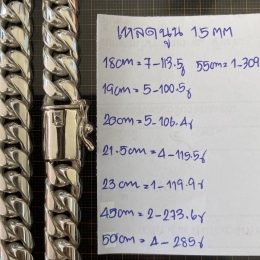 เหลดนูน 15mm
18cm = 7-113.5g 55cm = 1-309
19cm = 5-100.5g
20cm = 5-106.4g
21.5cm = 4-115.5g
23cm = 1-119.9g
45cm = 2-273.6g
50cm = 4-285g